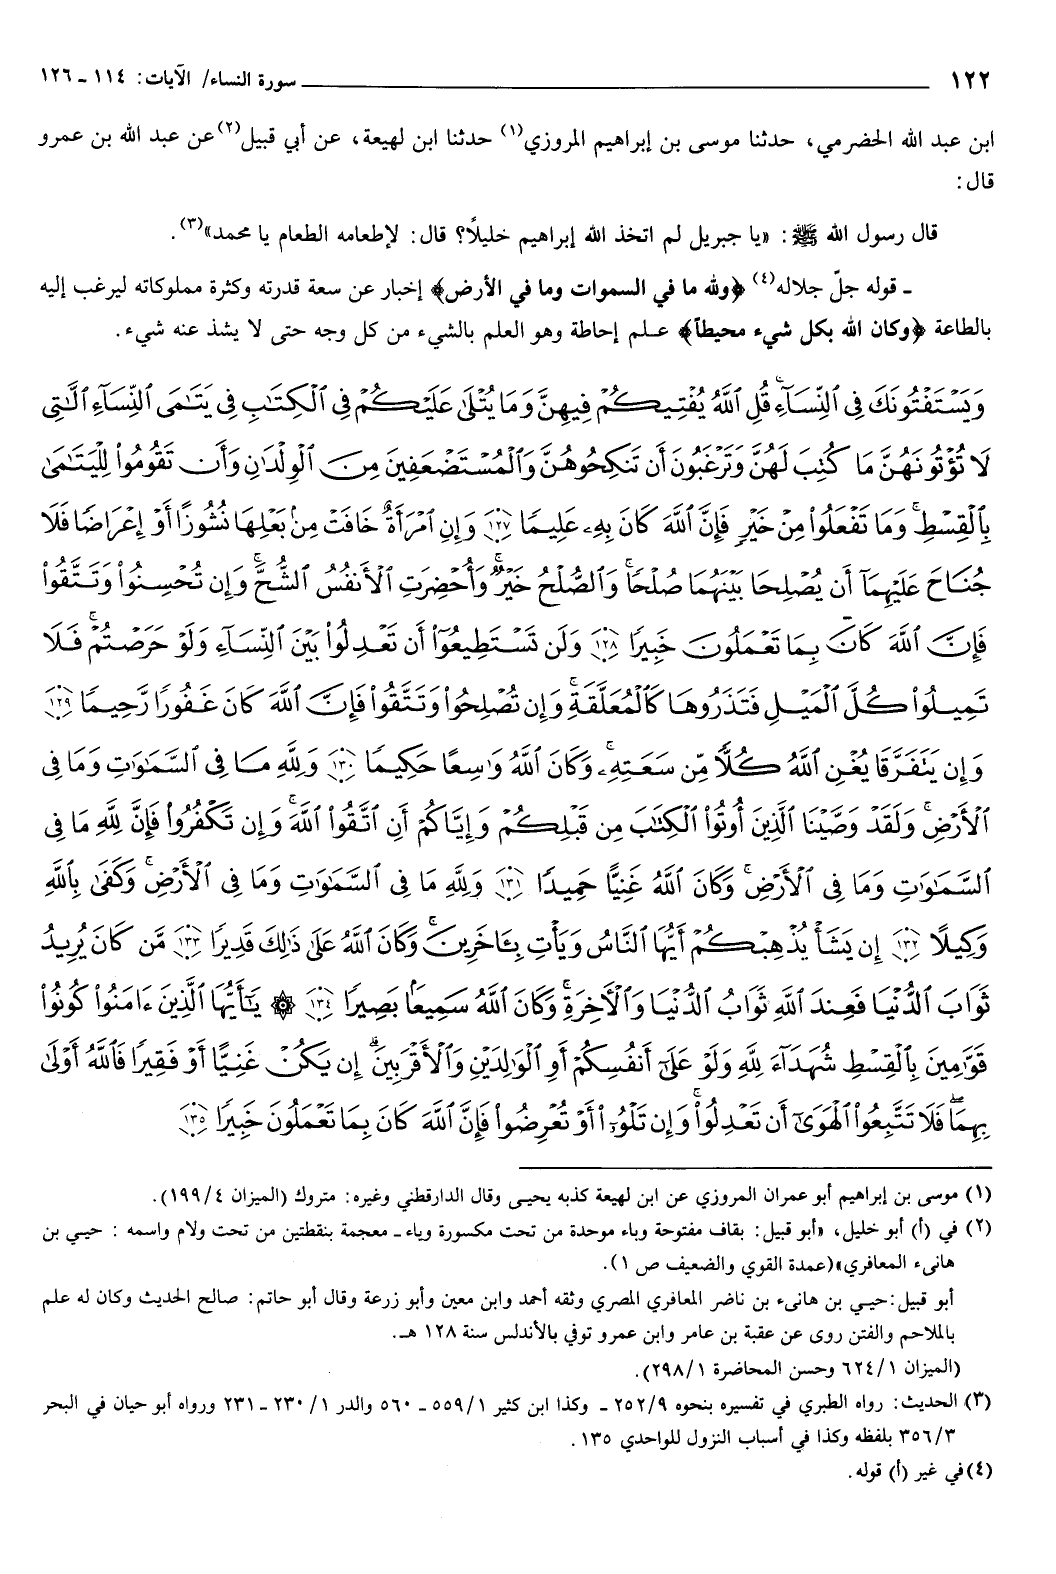 ١٢٢ سورة النساء/ الآيات: ١١٤ ـ ١٢٦
ابن عبد الله الحضرمي، حدثنا موسى بن إبراهيم المروزي(١) حدثنا ابن لهيعة، عن أبي قبيل(٢) عن عبد الله بن عمرو
قال:
قال رسول الله ﷺ: «يا جبريل لم اتخذ الله إبراهيم خليلًا؟ قال: لإطعامه الطعام يا محمد»(٣).
ـ قوله جلّ جلاله(٤) ﴿ولله ما في السموات وما في الأرض﴾ إخبار عن سعة قدرته وكثرة مملوكاته ليرغب إليه
بالطاعة ﴿وكان الله بكل شيء محيطاً﴾ علم إحاطة وهو العلم بالشيء من كل وجه حتى لا يشذ عنه شيء.
وَيَسْتَفْتُونَكَ فِى ٱلنِّسَآءِۖ قُلِ ٱللَّهُ يُفْتِيكُمْ فِيهِنَّ وَمَا يُتْلَىٰ عَلَيْكُمْ فِى ٱلْكِتَٰبِ فِى يَتَٰمَى ٱلنِّسَآءِ ٱلَّٰتِى
لَا تُؤْتُونَهُنَّ مَا كُتِبَ لَهُنَّ وَتَرْغَبُونَ أَن تَنكِحُوهُنَّ وَٱلْمُسْتَضْعَفِينَ مِنَ ٱلْوِلْدَٰنِ وَأَن تَقُومُوا۟ لِلْيَتَٰمَىٰ
بِٱلْقِسْطِۚ وَمَا تَفْعَلُوا۟ مِنْ خَيْرٍ فَإِنَّ ٱللَّهَ كَانَ بِهِۦ عَلِيمًا ١٢٧ وَإِنِ ٱمْرَأَةٌ خَافَتْ مِنۢ بَعْلِهَا نُشُوزًا أَوْ إِعْرَاضًا فَلَا
جُنَاحَ عَلَيْهِمَآ أَن يُصْلِحَا بَيْنَهُمَا صُلْحًاۚ وَٱلصُّلْحُ خَيْرٌۗ وَأُحْضِرَتِ ٱلْأَنفُسُ ٱلشُّحَّۚ وَإِن تُحْسِنُوا۟ وَتَتَّقُوا۟
فَإِنَّ ٱللَّهَ كَانَ بِمَا تَعْمَلُونَ خَبِيرًا ١٢٨ وَلَن تَسْتَطِيعُوٓا۟ أَن تَعْدِلُوا۟ بَيْنَ ٱلنِّسَآءِ وَلَوْ حَرَصْتُمْۖ فَلَا
تَمِيلُوا۟ كُلَّ ٱلْمَيْلِ فَتَذَرُوهَا كَٱلْمُعَلَّقَةِۚ وَإِن تُصْلِحُوا۟ وَتَتَّقُوا۟ فَإِنَّ ٱللَّهَ كَانَ غَفُورًا رَّحِيمًا ١٢٩
وَإِن يَتَفَرَّقَا يُغْنِ ٱللَّهُ كُلًّا مِّن سَعَتِهِۦۚ وَكَانَ ٱللَّهُ وَٰسِعًا حَكِيمًا ١٣٠ وَلِلَّهِ مَا فِى ٱلسَّمَٰوَٰتِ وَمَا فِى
ٱلْأَرْضِۗ وَلَقَدْ وَصَّيْنَا ٱلَّذِينَ أُوتُوا۟ ٱلْكِتَٰبَ مِن قَبْلِكُمْ وَإِيَّاكُمْ أَنِ ٱتَّقُوا۟ ٱللَّهَۚ وَإِن تَكْفُرُوا۟ فَإِنَّ لِلَّهِ مَا فِى
ٱلسَّمَٰوَٰتِ وَمَا فِى ٱلْأَرْضِۚ وَكَانَ ٱللَّهُ غَنِيًّا حَمِيدًا ١٣١ وَلِلَّهِ مَا فِى ٱلسَّمَٰوَٰتِ وَمَا فِى ٱلْأَرْضِۚ وَكَفَىٰ بِٱللَّهِ
وَكِيلًا ١٣٢ إِن يَشَأْ يُذْهِبْكُمْ أَيُّهَا ٱلنَّاسُ وَيَأْتِ بِـَٔاخَرِينَۚ وَكَانَ ٱللَّهُ عَلَىٰ ذَٰلِكَ قَدِيرًا ١٣٣ مَّن كَانَ يُرِيدُ
ثَوَابَ ٱلدُّنْيَا فَعِندَ ٱللَّهِ ثَوَابُ ٱلدُّنْيَا وَٱلْءَاخِرَةِۚ وَكَانَ ٱللَّهُ سَمِيعًۢا بَصِيرًا ١٣٤ ۞ يَٰٓأَيُّهَا ٱلَّذِينَ ءَامَنُوا۟ كُونُوا۟
قَوَّٰمِينَ بِٱلْقِسْطِ شُهَدَآءَ لِلَّهِ وَلَوْ عَلَىٰٓ أَنفُسِكُمْ أَوِ ٱلْوَٰلِدَيْنِ وَٱلْأَقْرَبِينَۚ إِن يَكُنْ غَنِيًّا أَوْ فَقِيرًا فَٱللَّهُ أَوْلَىٰ
بِهِمَاۖ فَلَا تَتَّبِعُوا۟ ٱلْهَوَىٰٓ أَن تَعْدِلُوا۟ۚ وَإِن تَلْوُۥٓا۟ أَوْ تُعْرِضُوا۟ فَإِنَّ ٱللَّهَ كَانَ بِمَا تَعْمَلُونَ خَبِيرًا ١٣٥
(١) موسى بن إبراهيم أبو عمران المروزي عن ابن لهيعة كذبه يحيى وقال الدارقطني وغيره: متروك (الميزان ٤/١٩٩).
(٢) في (أ) أبو خليل، «أبو قبيل: بقاف مفتوحة وباء موحدة من تحت مكسورة وياء ـ معجمة بنقطتين من تحت ولام واسمه : حيي بن
هانىء المعافري»(عمدة القوي والضعيف ص ١).
أبو قبيل:حيي بن هانىء بن ناضر المعافري المصري وثقه أحمد وابن معين وأبو زرعة وقال أبو حاتم: صالح الحديث وكان له علم
بالملاحم والفتن روى عن عقبة بن عامر وابن عمرو توفي بالأندلس سنة ١٢٨ هـ.
(الميزان ١/٦٢٤ وحسن المحاضرة ١/٢٩٨).
(٣) الحديث: رواه الطبري في تفسيره بنحوه ٩/٢٥٢ ـ وكذا ابن كثير ١/٥٥٩ ـ ٥٦٠ والدر ١/ ٢٣٠ ـ ٢٣١ ورواه أبو حيان في البحر
٣/٣٥٦ بلفظه وكذا في أسباب النزول للواحدي ١٣٥.
(٤) في غير (أ) قوله.